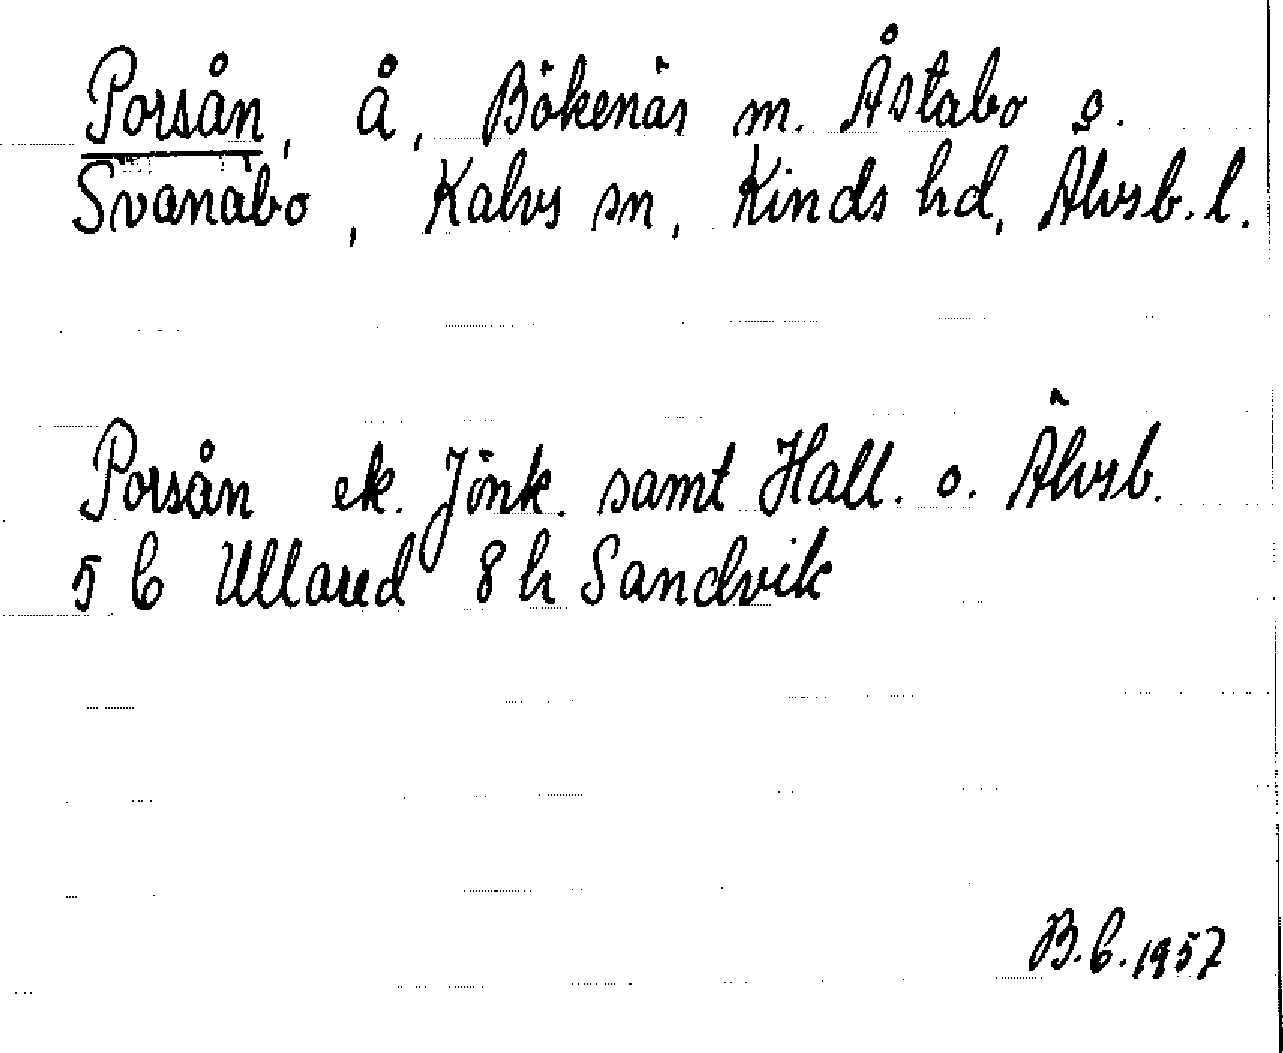 Porsån, å, Bökenäs m. Åstabo o.
Svanabo, Kalvs sn, Kinds hd, Älvsb. l.
Porsån ek. Jönk. samt Hall. o. Älvsb.
5 b Ullared 8 h Sandvik
B.b. 1957